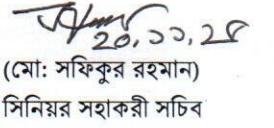 ২০.১১.২৪
(মো: সফিকুর রহমান)
সিনিয়র সহাকরী সচিব